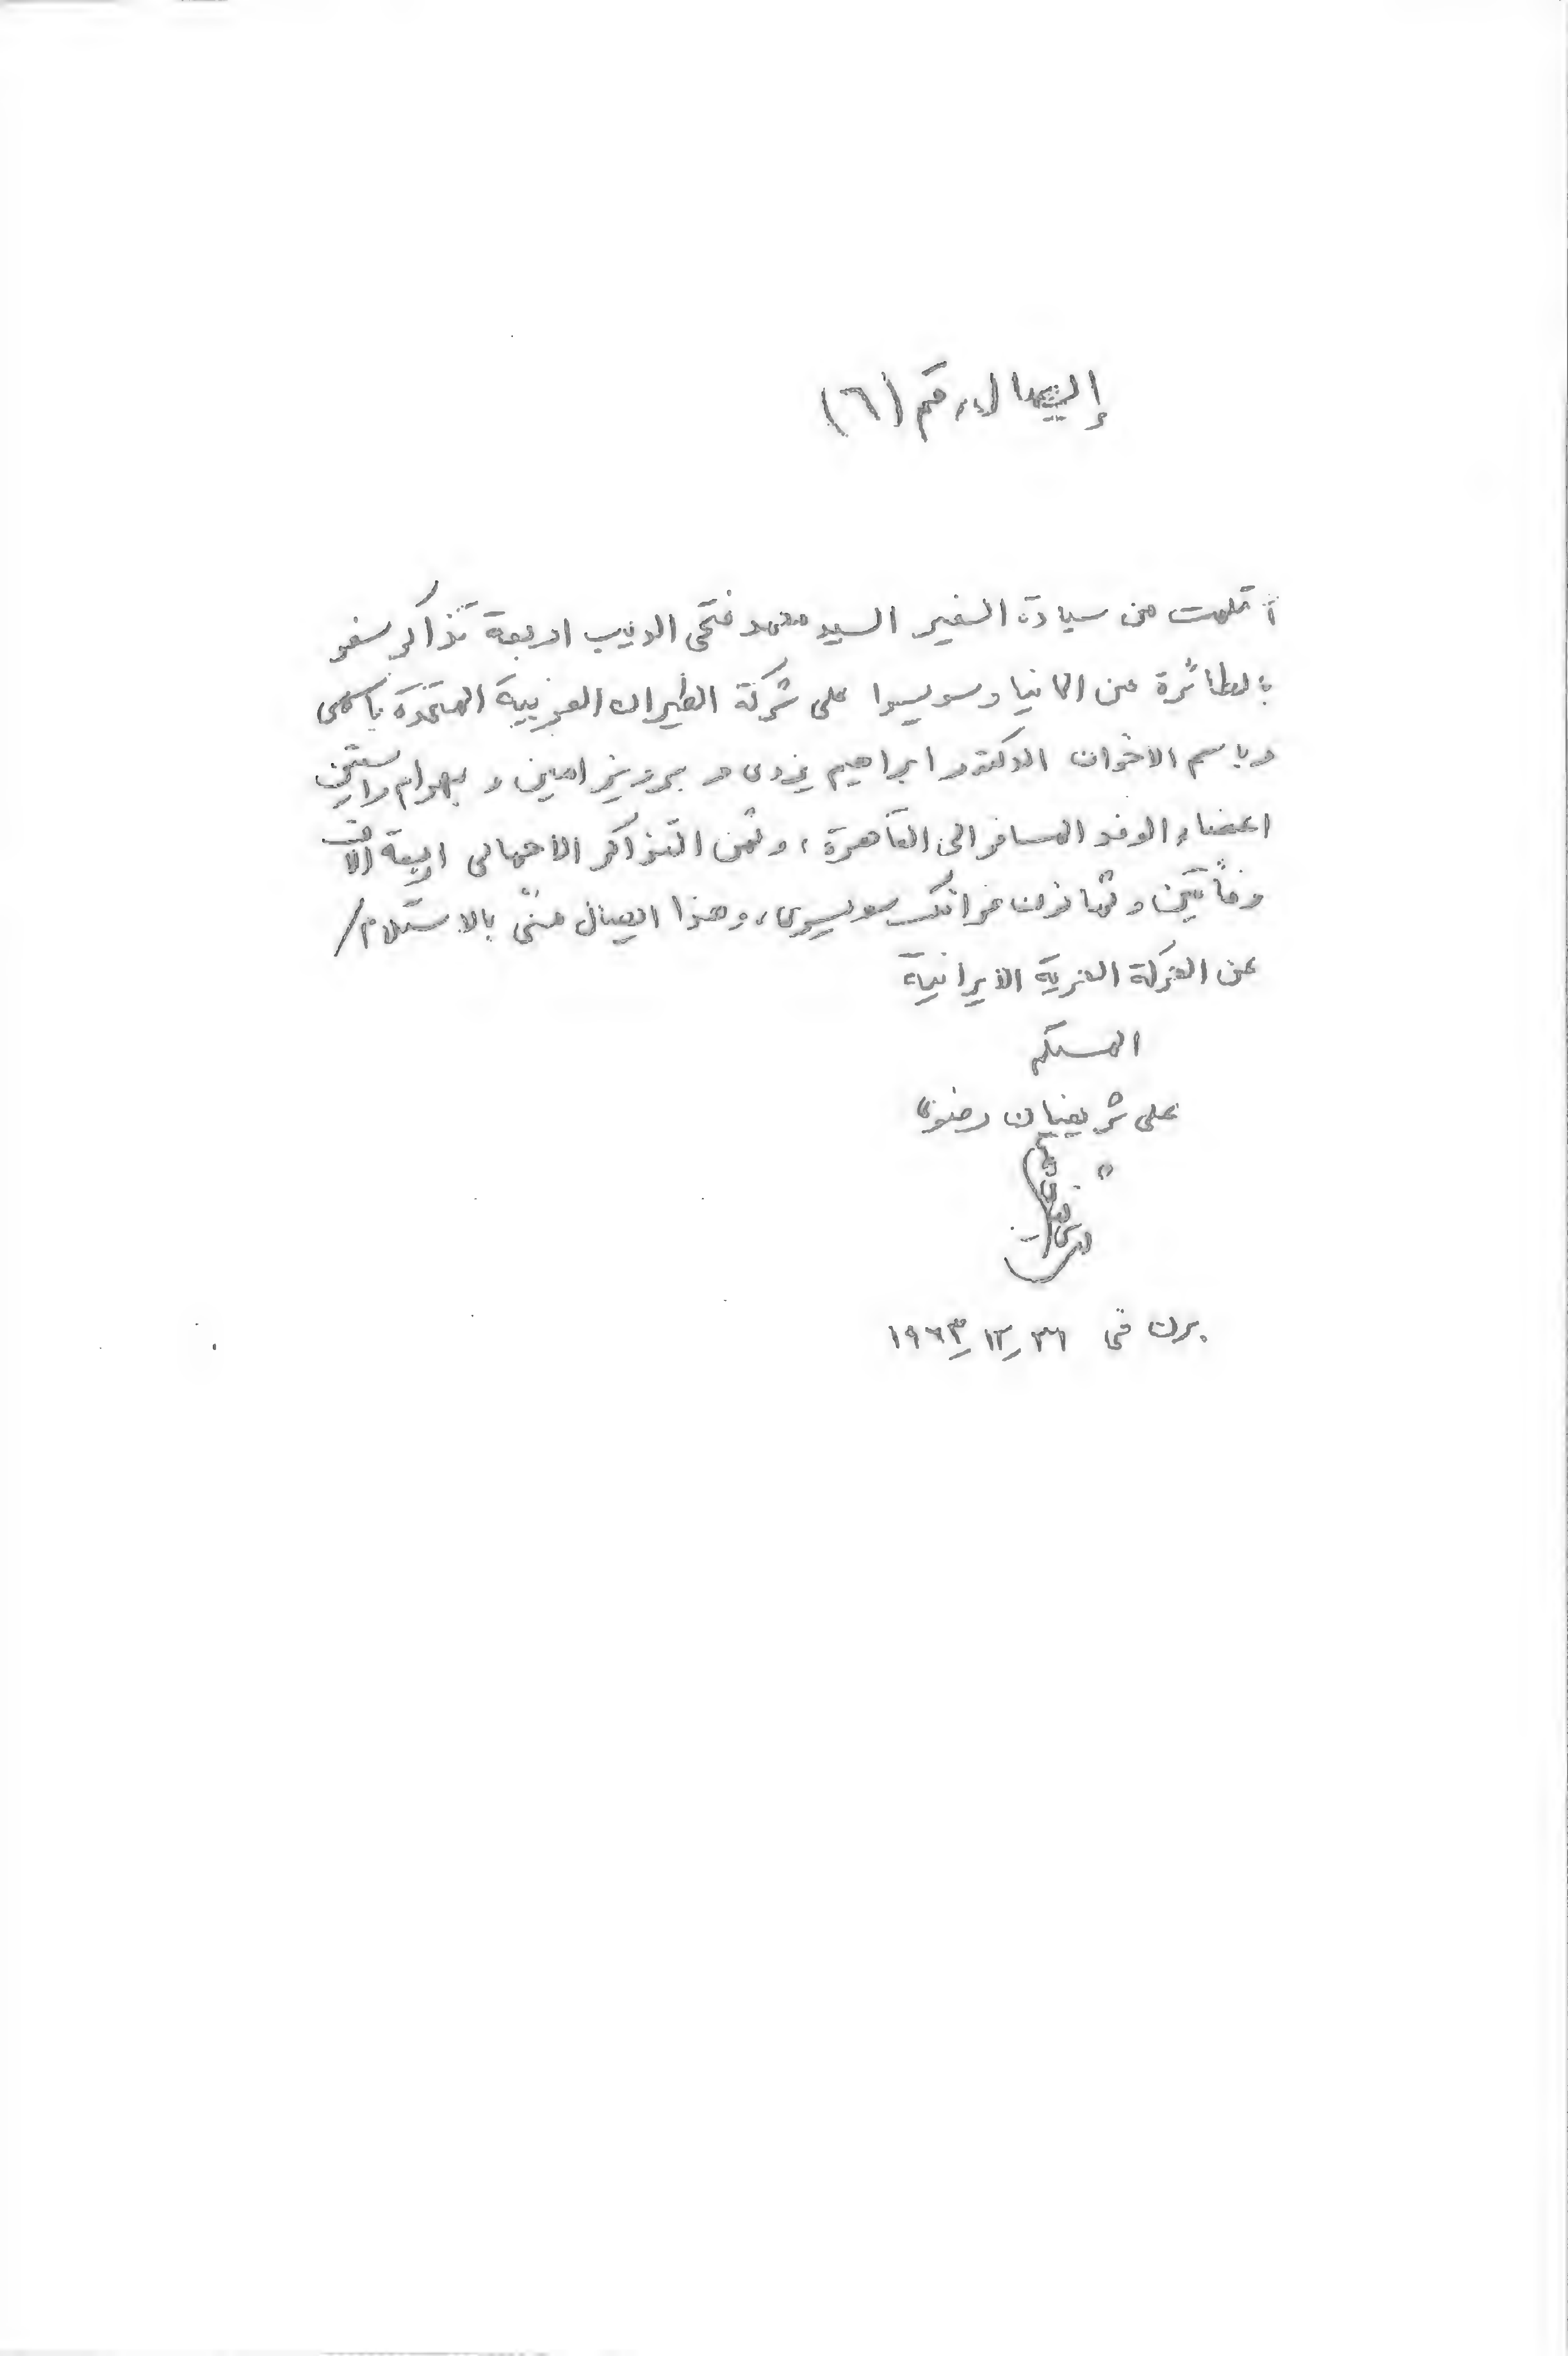 إيصال رقم (٦)
استلمت من سيادة السفير السيد محمد فتحى الديب اربعة تذاكر سفر
بالطائرة من المانيا وسويسرا على شركة الطيران العربية المتحدة باسمى
وباسم الاخوان الدكتور ابراهيم يزدى و برويز امين و بهرام راستين
اعضاء الوفد المسافر الى القاهرة، وثمن التذاكر الاجمالى اربعة آلاف
ومأتين وثمانون فرانك سويسرى، وهذا ايصال منى بالاستلام/
عن الحركة الحرية الايرانية
المستلم
على شريفيان رضوى
برن فى ٣١ر١٢ر١٩٦٣